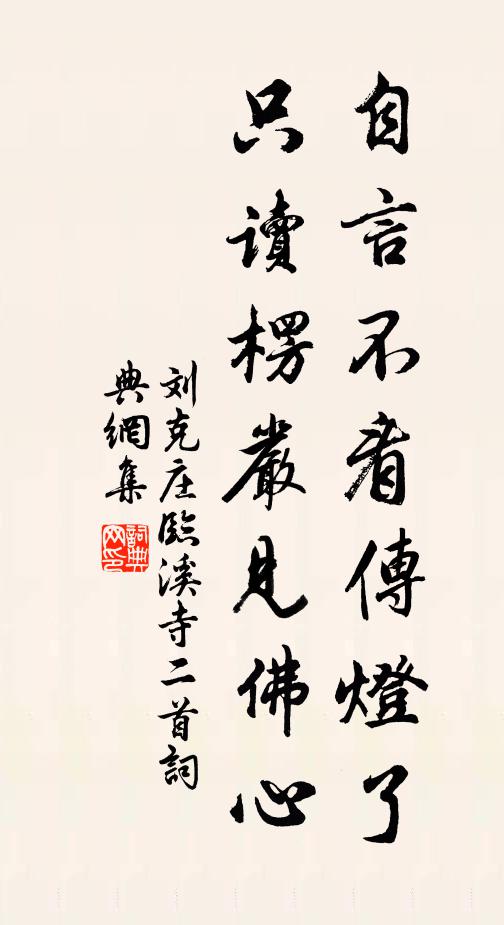 自言不看傳燈了
只讀楞嚴見佛心
刘克庄臨溪寺二首詞
典網集
詞典网印